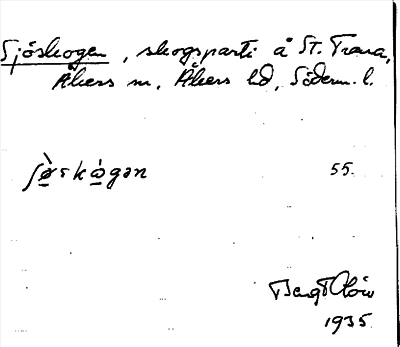 Sjöskogen, skogsparti å St. Trana,
Åkers sn, Åkers hd, Söderm. l.
ʃø̀skógən 55.
Bengt Olów
1935